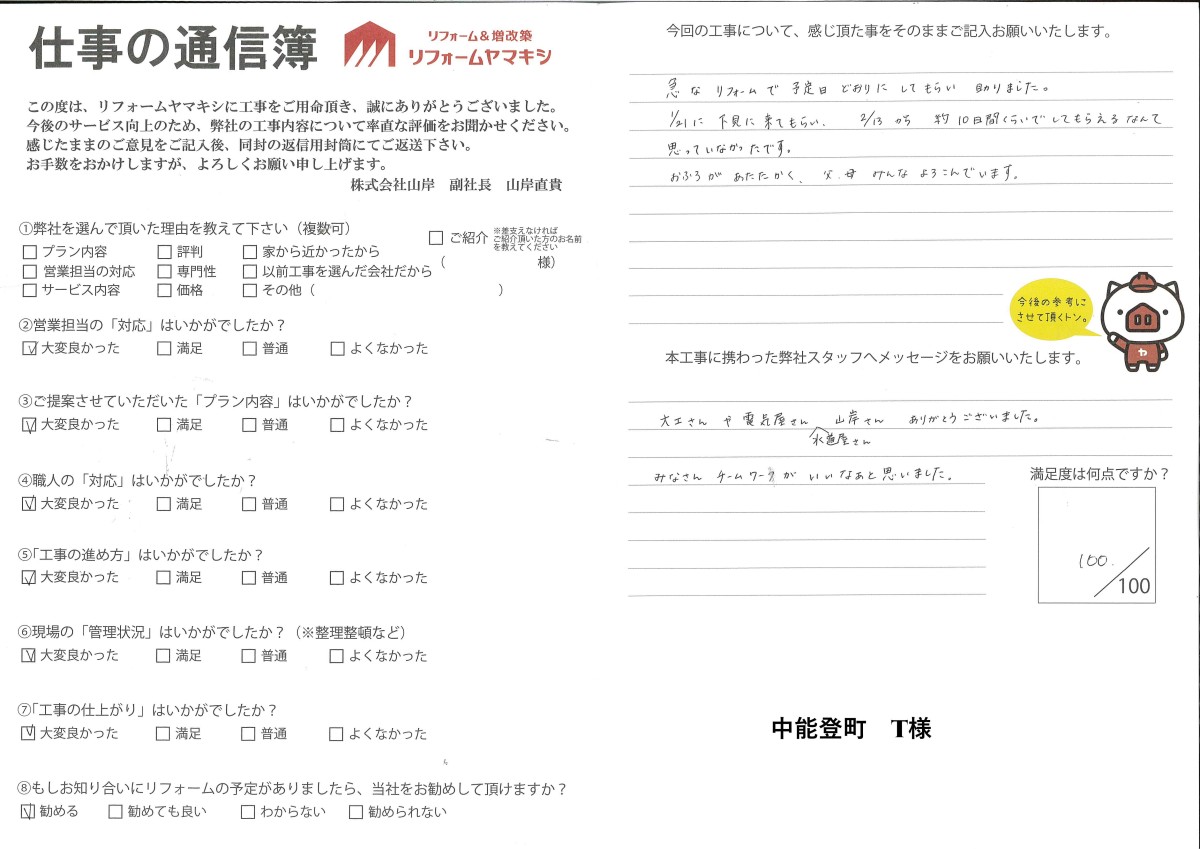 仕事の通信簿
リフォーム&増改築
リフォームヤマキシ
この度は、リフォームヤマキシに工事をご用命頂き、誠にありがとうございました。
今後のサービス向上のため、弊社の工事内容について率直な評価をお聞かせください。
感じたままのご意見をご記入後、同封の返信用封筒にてご返送下さい。
お手数をおかけしますが、よろしくお願い申し上げます。
株式会社山岸　副社長　山岸直貴
①弊社を選んで頂いた理由を教えて下さい（複数可）
□ プラン内容　□ 評判　□ 家から近かったから
□ 営業担当の対応　□ 専門性　□ 以前工事を選んだ会社だから
□ サービス内容　□ 価格　□ その他（　　　）
□ ご紹介
※差支えなければ
ご紹介頂いた方のお名前
を教えてください
（　　　様）
②営業担当の「対応」はいかがでしたか？
☑ 大変良かった　□ 満足　□ 普通　□ よくなかった
③ご提案させていただいた「プラン内容」はいかがでしたか？
☑ 大変良かった　□ 満足　□ 普通　□ よくなかった
④職人の「対応」はいかがでしたか？
☑ 大変良かった　□ 満足　□ 普通　□ よくなかった
⑤「工事の進め方」はいかがでしたか？
☑ 大変良かった　□ 満足　□ 普通　□ よくなかった
⑥現場の「管理状況」はいかがでしたか？（※整理整頓など）
☑ 大変良かった　□ 満足　□ 普通　□ よくなかった
⑦「工事の仕上がり」はいかがでしたか？
☑ 大変良かった　□ 満足　□ 普通　□ よくなかった
⑧もしお知り合いにリフォームの予定がありましたら、当社をお勧めして頂けますか？
☑ 勧める　□ 勧めても良い　□ わからない　□ 勧められない
今回の工事について、感じ頂た事をそのままご記入お願いいたします。
急な リフォームで 予定日 どおりに してもらい 助りました。
1/21に 下見に来てもらい、 2/13 から 約10日間くらいでしてもらえるなんて
思っていなかったです。
おふろが あたたかく、 父、母 みんな よろこんでいます。
今後の参考に
させて頂くトン。
ヤ
本工事に携わった弊社スタッフへメッセージをお願いいたします。
大工さん や 電気屋さん 山岸さん ありがとうございました。
水道屋さん
みなさん チームワークが いいなぁと思いました。
満足度は何点ですか？
100.
/100
中能登町　T様